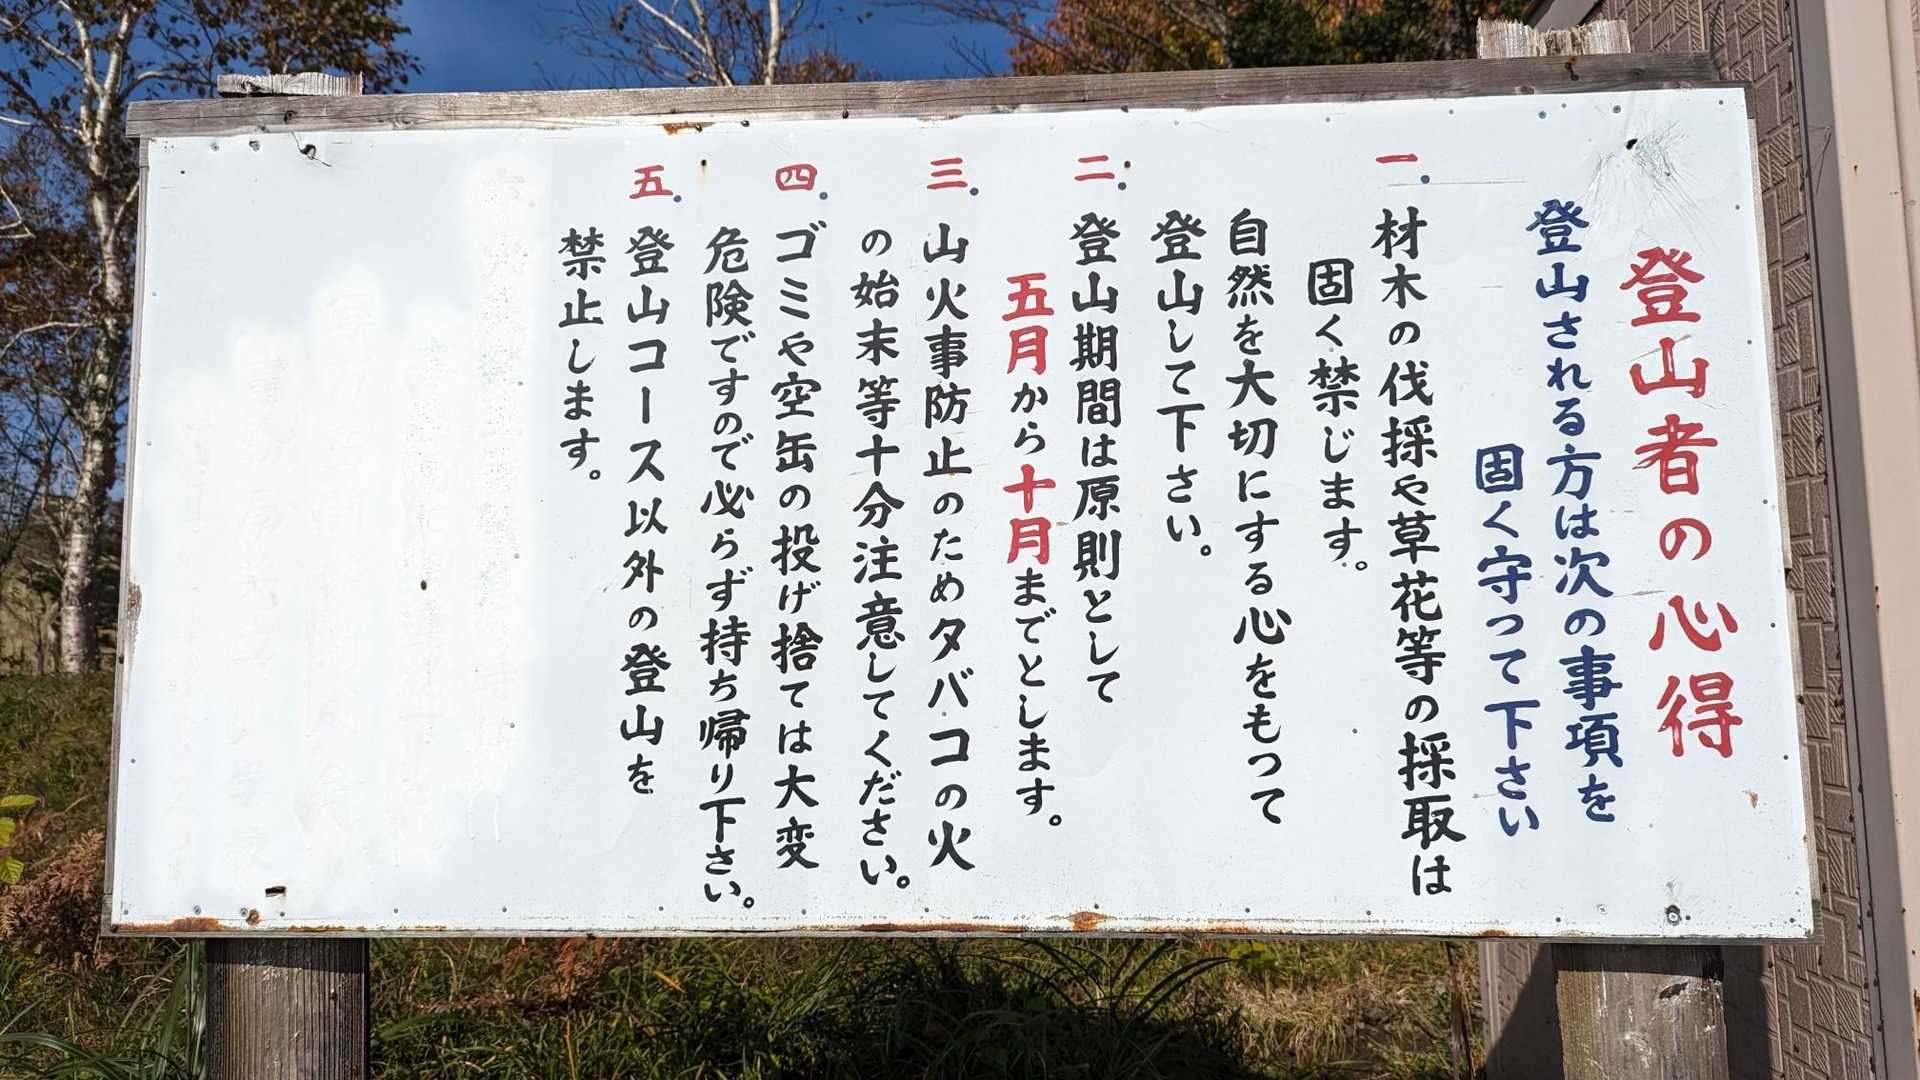 登山者の心得
登山される方は次の事項を
固く守って下さい
一.材木の伐採や草花等の採取は
固く禁じます。
自然を大切にする心をもって
登山して下さい。
二.登山期間は原則として
五月から十月までとします。
三.山火事防止のためタバコの火
の始末等十分注意してください。
四.ゴミや空缶の投げ捨ては大変
危険ですので必らず持ち帰り下さい。
五.登山コース以外の登山を
禁止します。